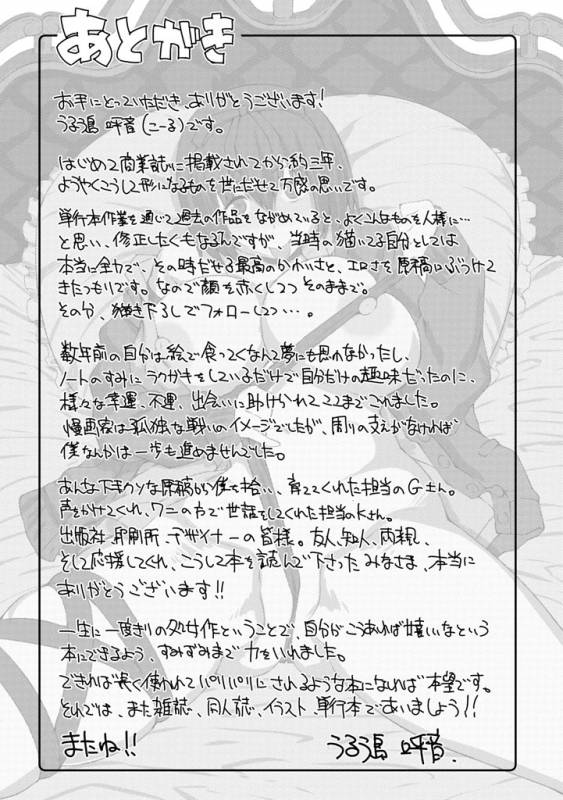 あとがき
お手にとっていただき、ありがとうございます!
うるう島 呼音(こーる)です。
はじめて商業誌に掲載されてから約三年、
ようやくこうして形になるものを世にだせて万感の思いです。
単行本作業を通じて過去の作品をながめていると、よくこんなものを人様に…
と思い、修正したくもなるんですが、当時の描いてる自分としては
本当に全力で、その時だせる最高のかわいさと、エロさを原稿にぶつけて
きたつもりです。なので顔を赤くしつつそのままで。
その分、描き下ろしでフォローしつつ…。
数年前の自分は絵で食ってくなんて夢にも思わなかったし、
ノートのすみにラクガキをしているだけで自分だけの趣味だったのに、
様々な幸運、不運、出会いに助けられてここまでこれました。
漫画家は孤独な戦いのイメージでしたが、周りの支えがなければ
僕なんかは一歩も進めませんでした。
あんな下手クソな原稿から僕を拾い、育ててくれた担当のGさん。
声をかけてくれ、ワニの中で世話をしてくれた担当のKさん。
出版社、印刷所、デザイナーの皆様。友人、知人、両親、
そして応援してくれ、こうして本を読んで下さったみなさま、本当に
ありがとうございます!!
一生に一度きりの処女作ということで、自分がこうあれば嬉しいなという
本にできるよう、すみずみまで力をいれました。
できれば長く使われてパリパリにされるような本になれば本望です。
それでは、また雑誌、同人誌、イラスト、単行本であいましょう!!
またね!!
うるう島 呼音.